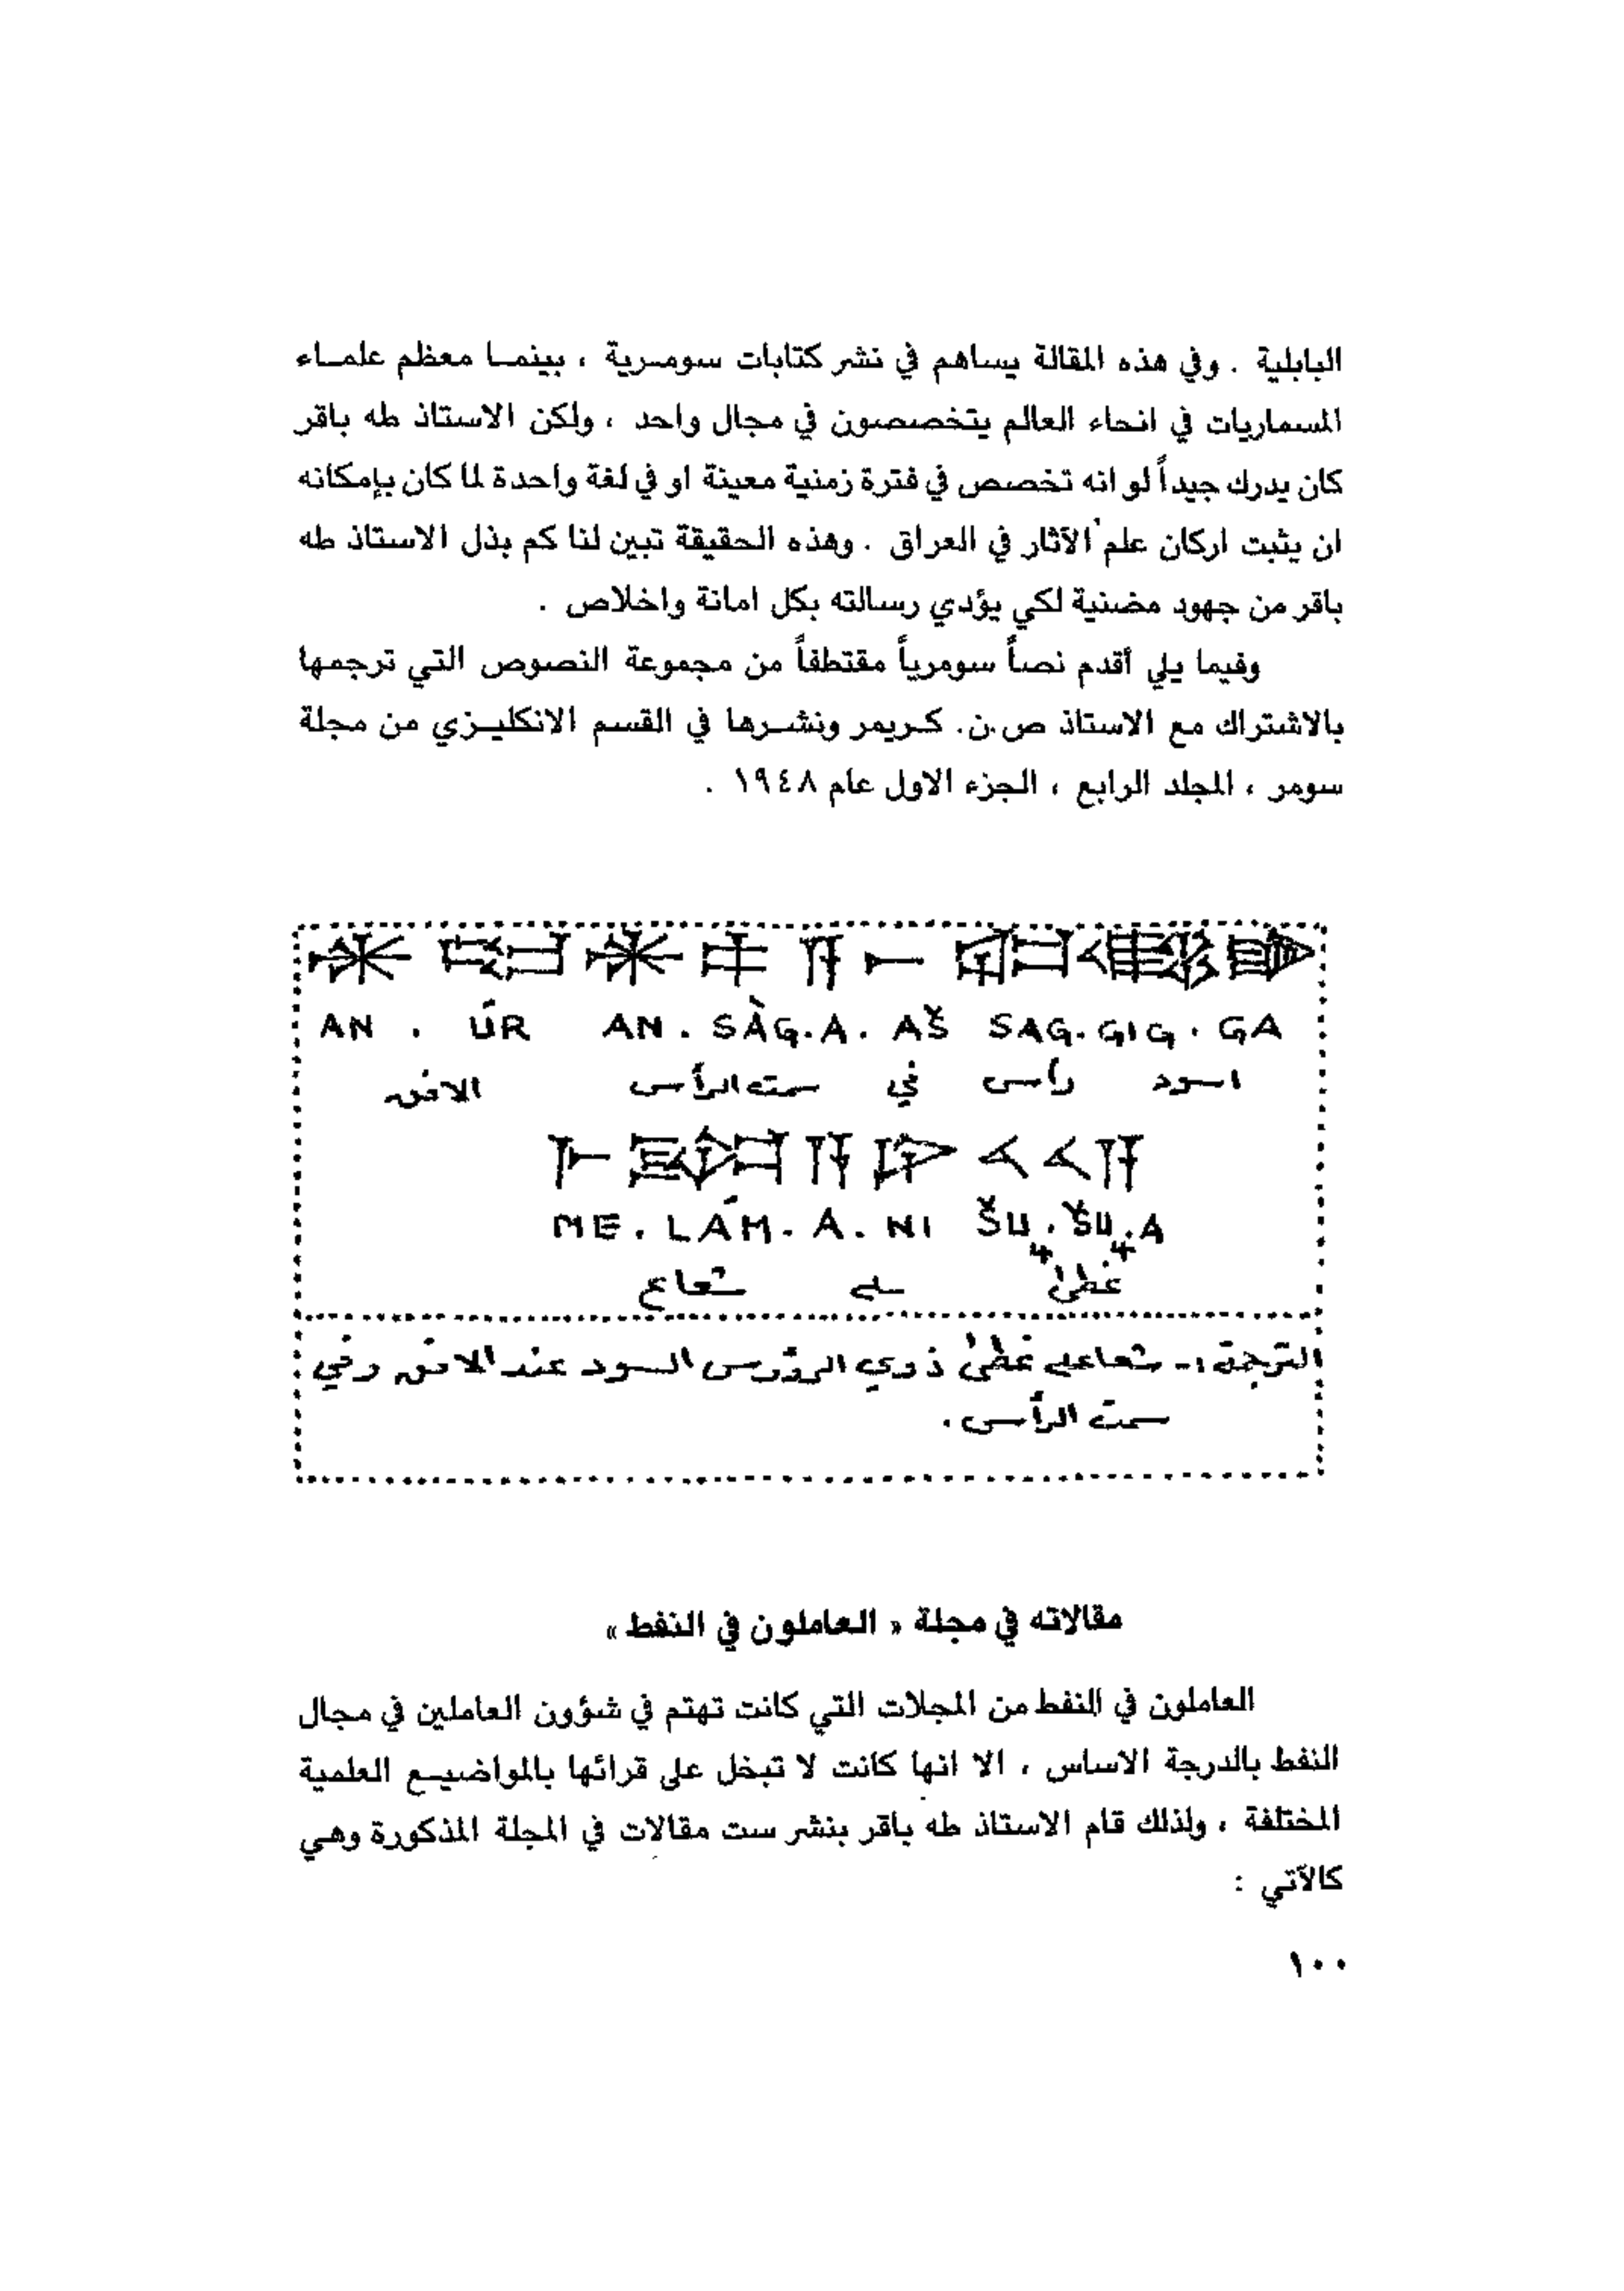 البابلية . وفي هذه المقالة يساهم في نشر كتابات سومـرية ، بينمـا معظم علمـاء
المسماريات في انحاء العالم يتخصصون في مجال واحد ، ولكن الاستاذ طه باقر
كان يدرك جيداً لو انه تخصص في فترة زمنية معينة او في لغة واحدة لما كان بإمكانه
ان يثبت اركان علم الآثار في العراق . وهذه الحقيقة تبين لنا كم بذل الاستاذ طه
باقر من جهود مضنية لكي يؤدي رسالته بكل امانة واخلاص .
وفيما يلي أقدم نصاً سومرياً مقتطفاً من مجموعة النصوص التي ترجمها
بالاشتراك مع الاستاذ ص.ن. كـريمر ونشـرها في القسم الانكليـزي من مجلة
سومر ، المجلد الرابع ، الجزء الاول عام ١٩٤٨ .
AN . ÚR AN . SÀG.A. AŠ SAG.GIG.GA
اسود رأس في سمت الرأس الافق
ME . LÁM. A. NI ŠU₄.ŠU₄.A
غطى شعاع
الترجمة :- شعاعه غطى ذوي الرؤوس السود عند الافق وفي
سمت الرأس .
مقالاته في مجلة « العاملون في النفط »
العاملون في النفط من المجلات التي كانت تهتم في شؤون العاملين في مجال
النفط بالدرجة الاساس ، الا انها كانت لا تبخل على قرائها بالمواضيـع العلمية
المختلفة ، ولذلك قام الاستاذ طه باقر بنشر ست مقالات في المجلة المذكورة وهي
كالآتي :
١٠٠